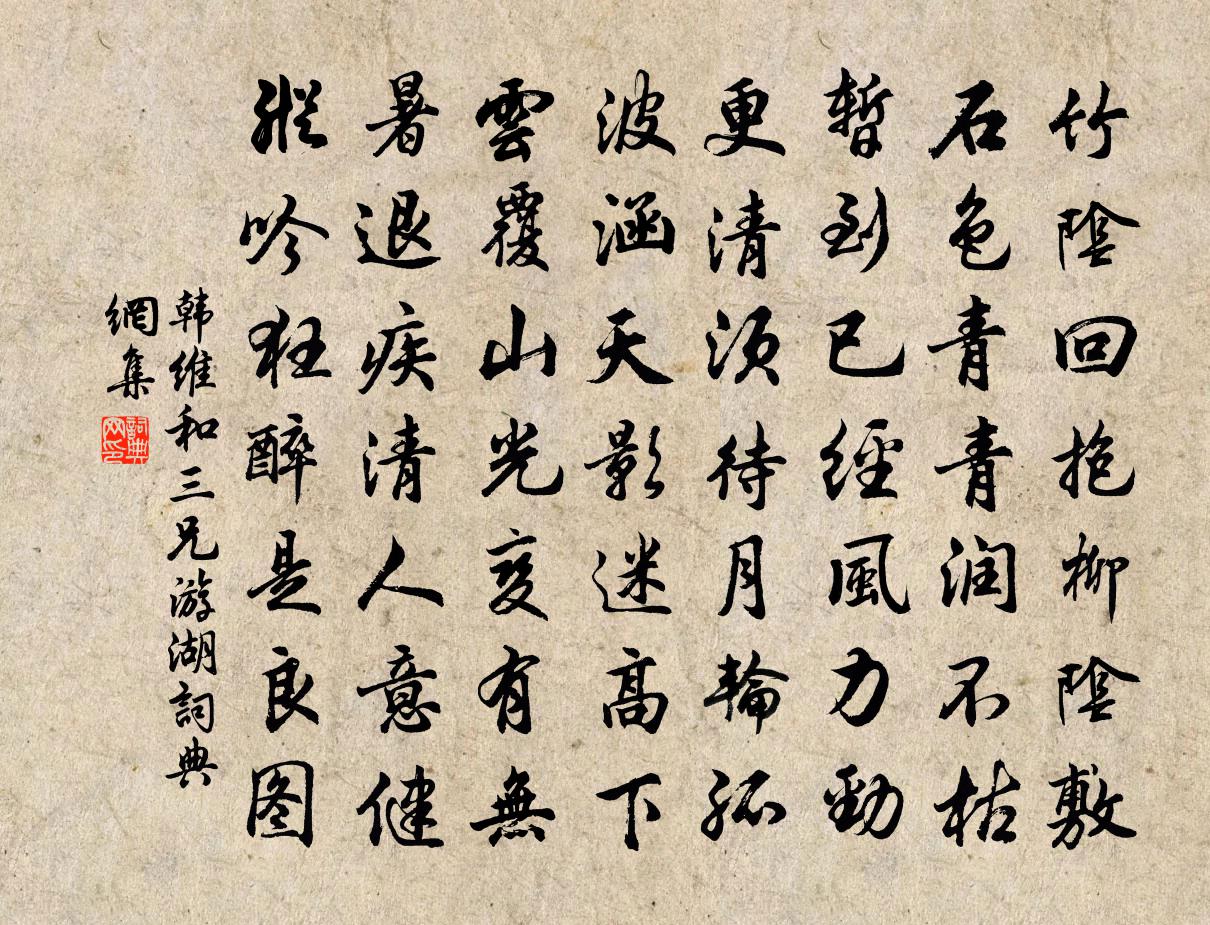 竹陰回抱柳陰敷
石色青青润不枯
暫到已經風力勁
更清须待月輪孤
波涵天影迷高下
雲覆山光变有無
暑退疾清人意健
縱吟狂醉是良图
韩維和三兄游湖詞典
網集
詞典網印